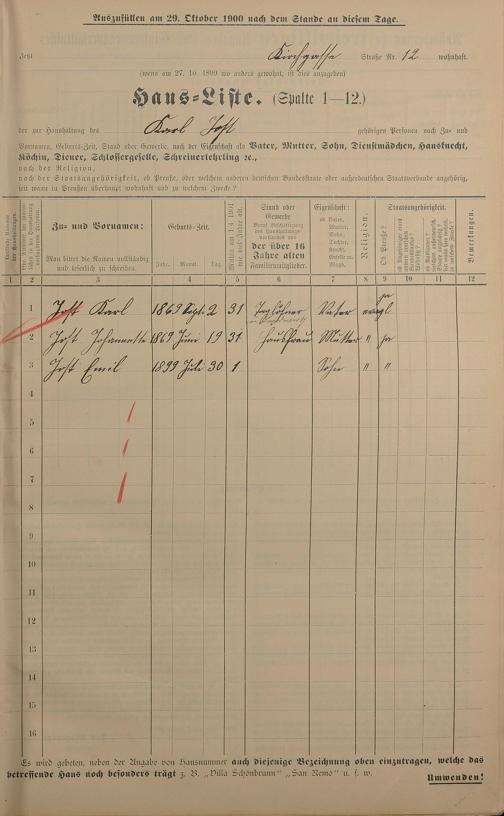 Auszufüllen am 29. Oktober 1900 nach dem Stande an diesem Tage.
Jetzt Kirchgasse Straße Nr. 12 wohnhaft.
(wenn am 27. 10. 1899 wo anders gewohnt, ist dies anzugeben)
Haus-Liste. (Spalte 1—12.)
der zur Haushaltung des Karl Jost gehörigen Personen nach Zu- und
Vornamen, Geburts-Zeit, Stand oder Gewerbe, nach der Eigenschaft als Vater, Mutter, Sohn, Dienstmädchen, Hausknecht,
Köchin, Diener, Schlossergeselle, Schreinerlehrling ꝛc.,
nach der Religion,
nach der Staatsangehörigkeit, ob Preuße, oder welchem anderen deutschen Bundesstaate oder außerdeutschen Staatsverbande angehörig,
seit wann in Preußen überhaupt wohnhaft und zu welchem Zwecke?
Zu- und Vornamen:
Man bittet die Namen vollständig
und leserlich zu schreiben.
Geburts-Zeit.
Jahr. Monat. Tag.
Stand oder
Gewerbe
der über 16
Jahre alten
Familienmitglieder.
Eigenschaft:
ob Vater,
Mutter,
Sohn,
Tochter,
Knecht,
Geselle u.
Magd.
Religion.
Staatsangehörigkeit.
Ob Preuße?
Bemerkungen.
1 2 3 4 5 6 7 8 9 10 11 12
1 Jost Karl 1869 Sept. 2 31 Taglöhner Vater evgl ja
2 Jost Johannette 1869 Juni 19 31 Hausfrau Mutter " ja
3 Jost Emil 1899 Juli 30 1 Sohn " "
4
5
6
7
8
9
10
11
12
13
14
15
16
Es wird gebeten, neben der Angabe von Hausnummer auch diejenige Bezeichnung oben einzutragen, welche das
betreffende Haus noch besonders trägt z. B. „Villa Schönbrunn" „San Remo" u. s. w.
Umwenden!